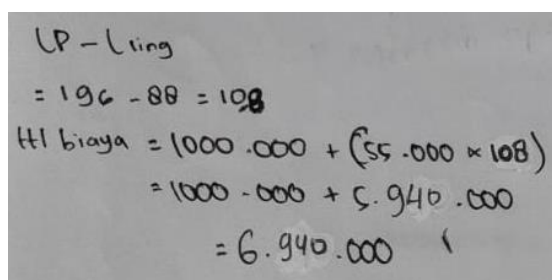 LP - Lling
= 196 - 88 = 108
Htl biaya = 1000.000 + (55.000 × 108)
= 1000.000 + 5.940.000
= 6.940.000